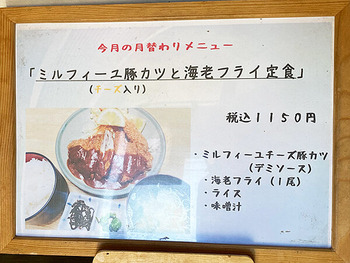 今月の月替わりメニュー
「ミルフィーユ豚カツと海老フライ定食」
(チーズ入り)
税込1150円
・ミルフィーユチーズ豚カツ
(デミソース)
・海老フライ(1尾)
・ライス
・味噌汁